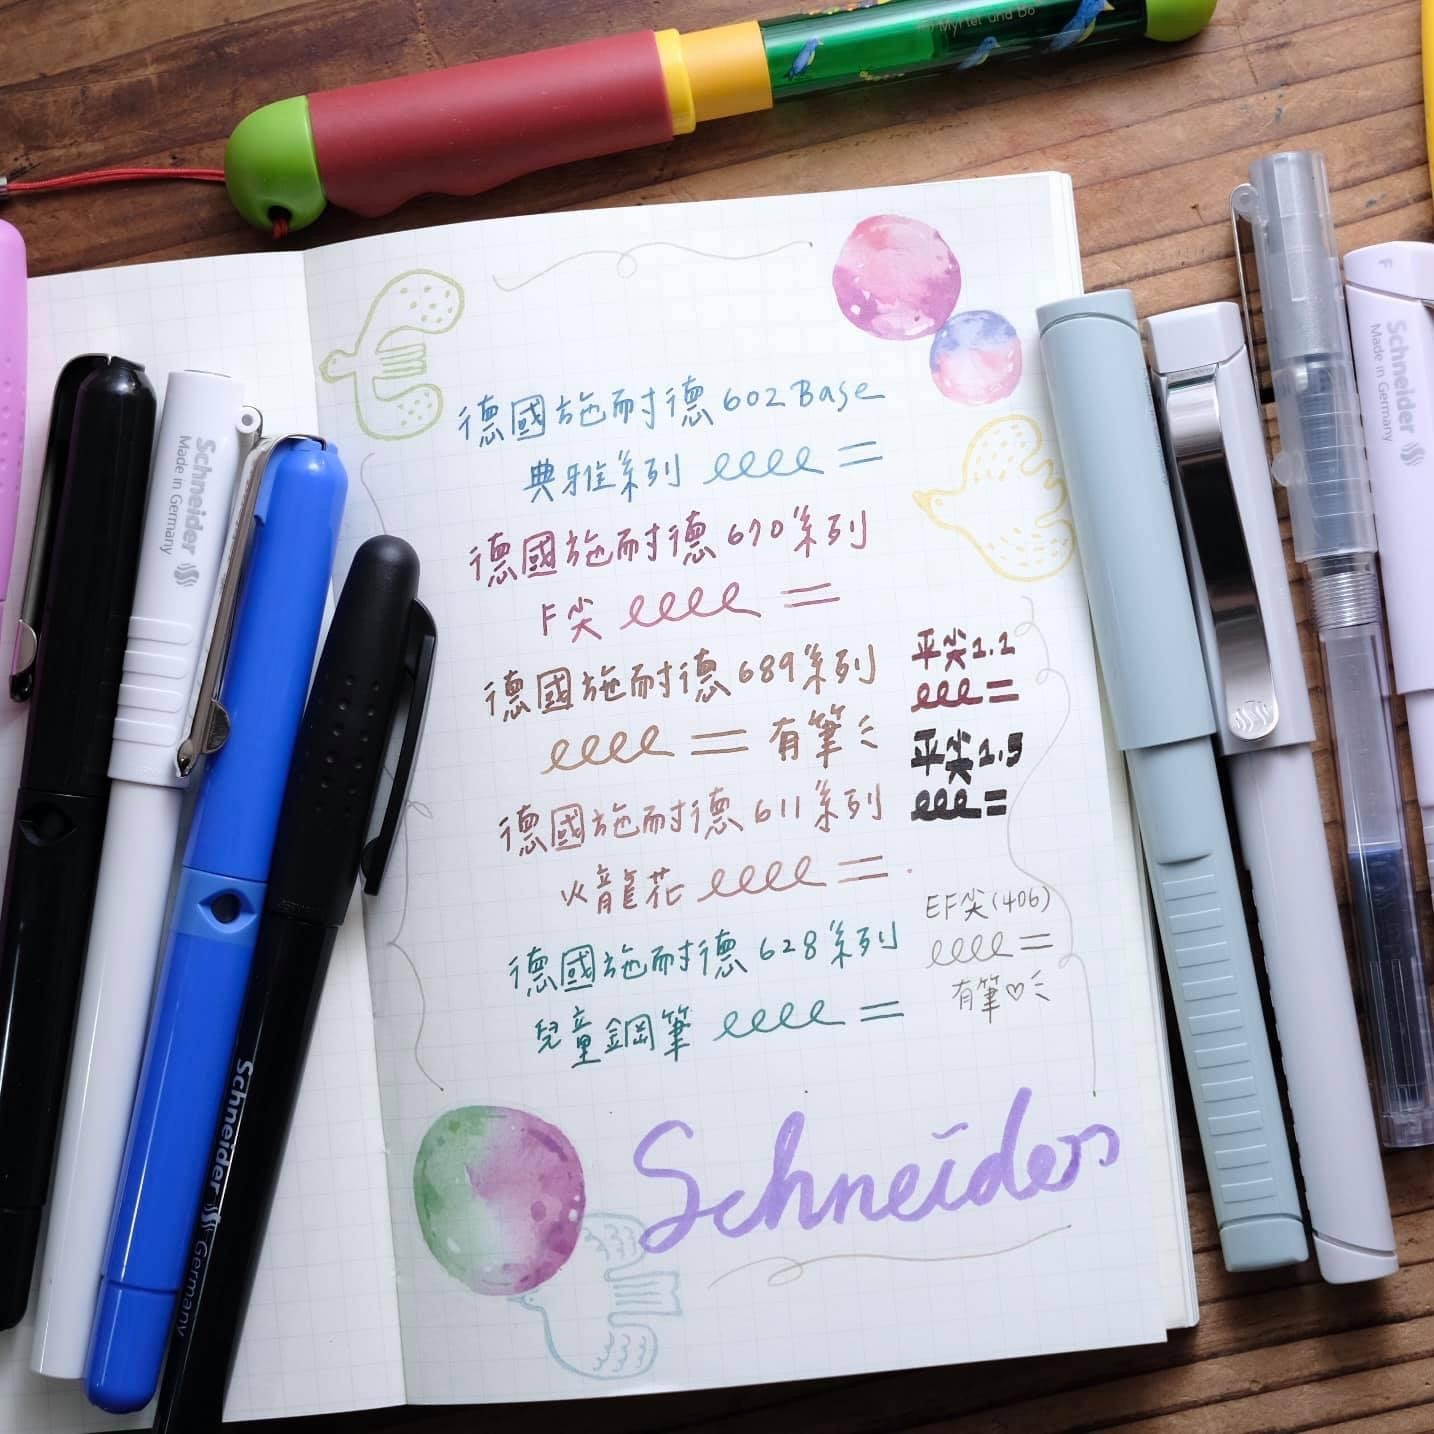 Myrtel and Bo
德國施耐德602Base
典雅系列
德國施耐德670系列
F尖
德國施耐德689系列
有筆
德國施耐德611系列
火龍花
德國施耐德628系列
兒童鋼筆
平尖1.1
平尖1.5
EF尖(406)
有筆♡
Schneider
Schneider
Made in Germany
Schneider Germany
F
Schneider
Made in Germany